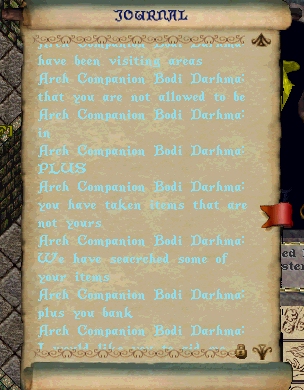 JOURNAL
Arch Companion Bodi Darhma:
have been visiting areas
Arch Companion Bodi Darhma:
that you are not allowed to be
Arch Companion Bodi Darhma:
in
Arch Companion Bodi Darhma:
PLUS
Arch Companion Bodi Darhma:
you have taken items that are
not yours
Arch Companion Bodi Darhma:
We have seacrched some of
your items
Arch Companion Bodi Darhma:
plus you bank
Arch Companion Bodi Darhma:
I would like you to